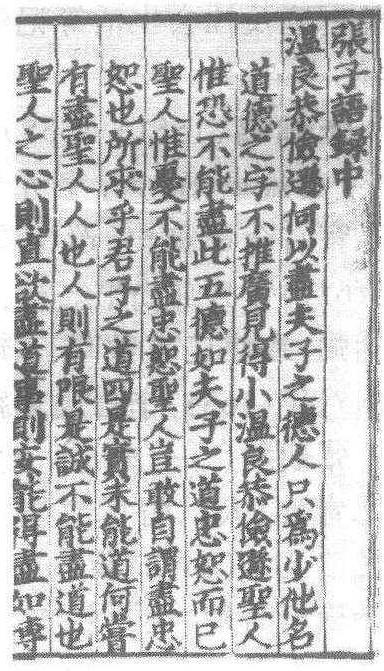 張子語録中
溫良恭儉遜何以盡夫子之德人只為少他名
道德之字不推廣見得小溫良恭儉遜聖人
惟恐不能盡此五德如夫子之道忠恕而已
聖人惟憂不能盡忠恕聖人豈敢自謂盡忠
恕也所求乎君子之道四是實未能道何嘗
有盡聖人人也人則有限是誠不能盡道也
聖人之心則直欲盡道事則安能得盡如專